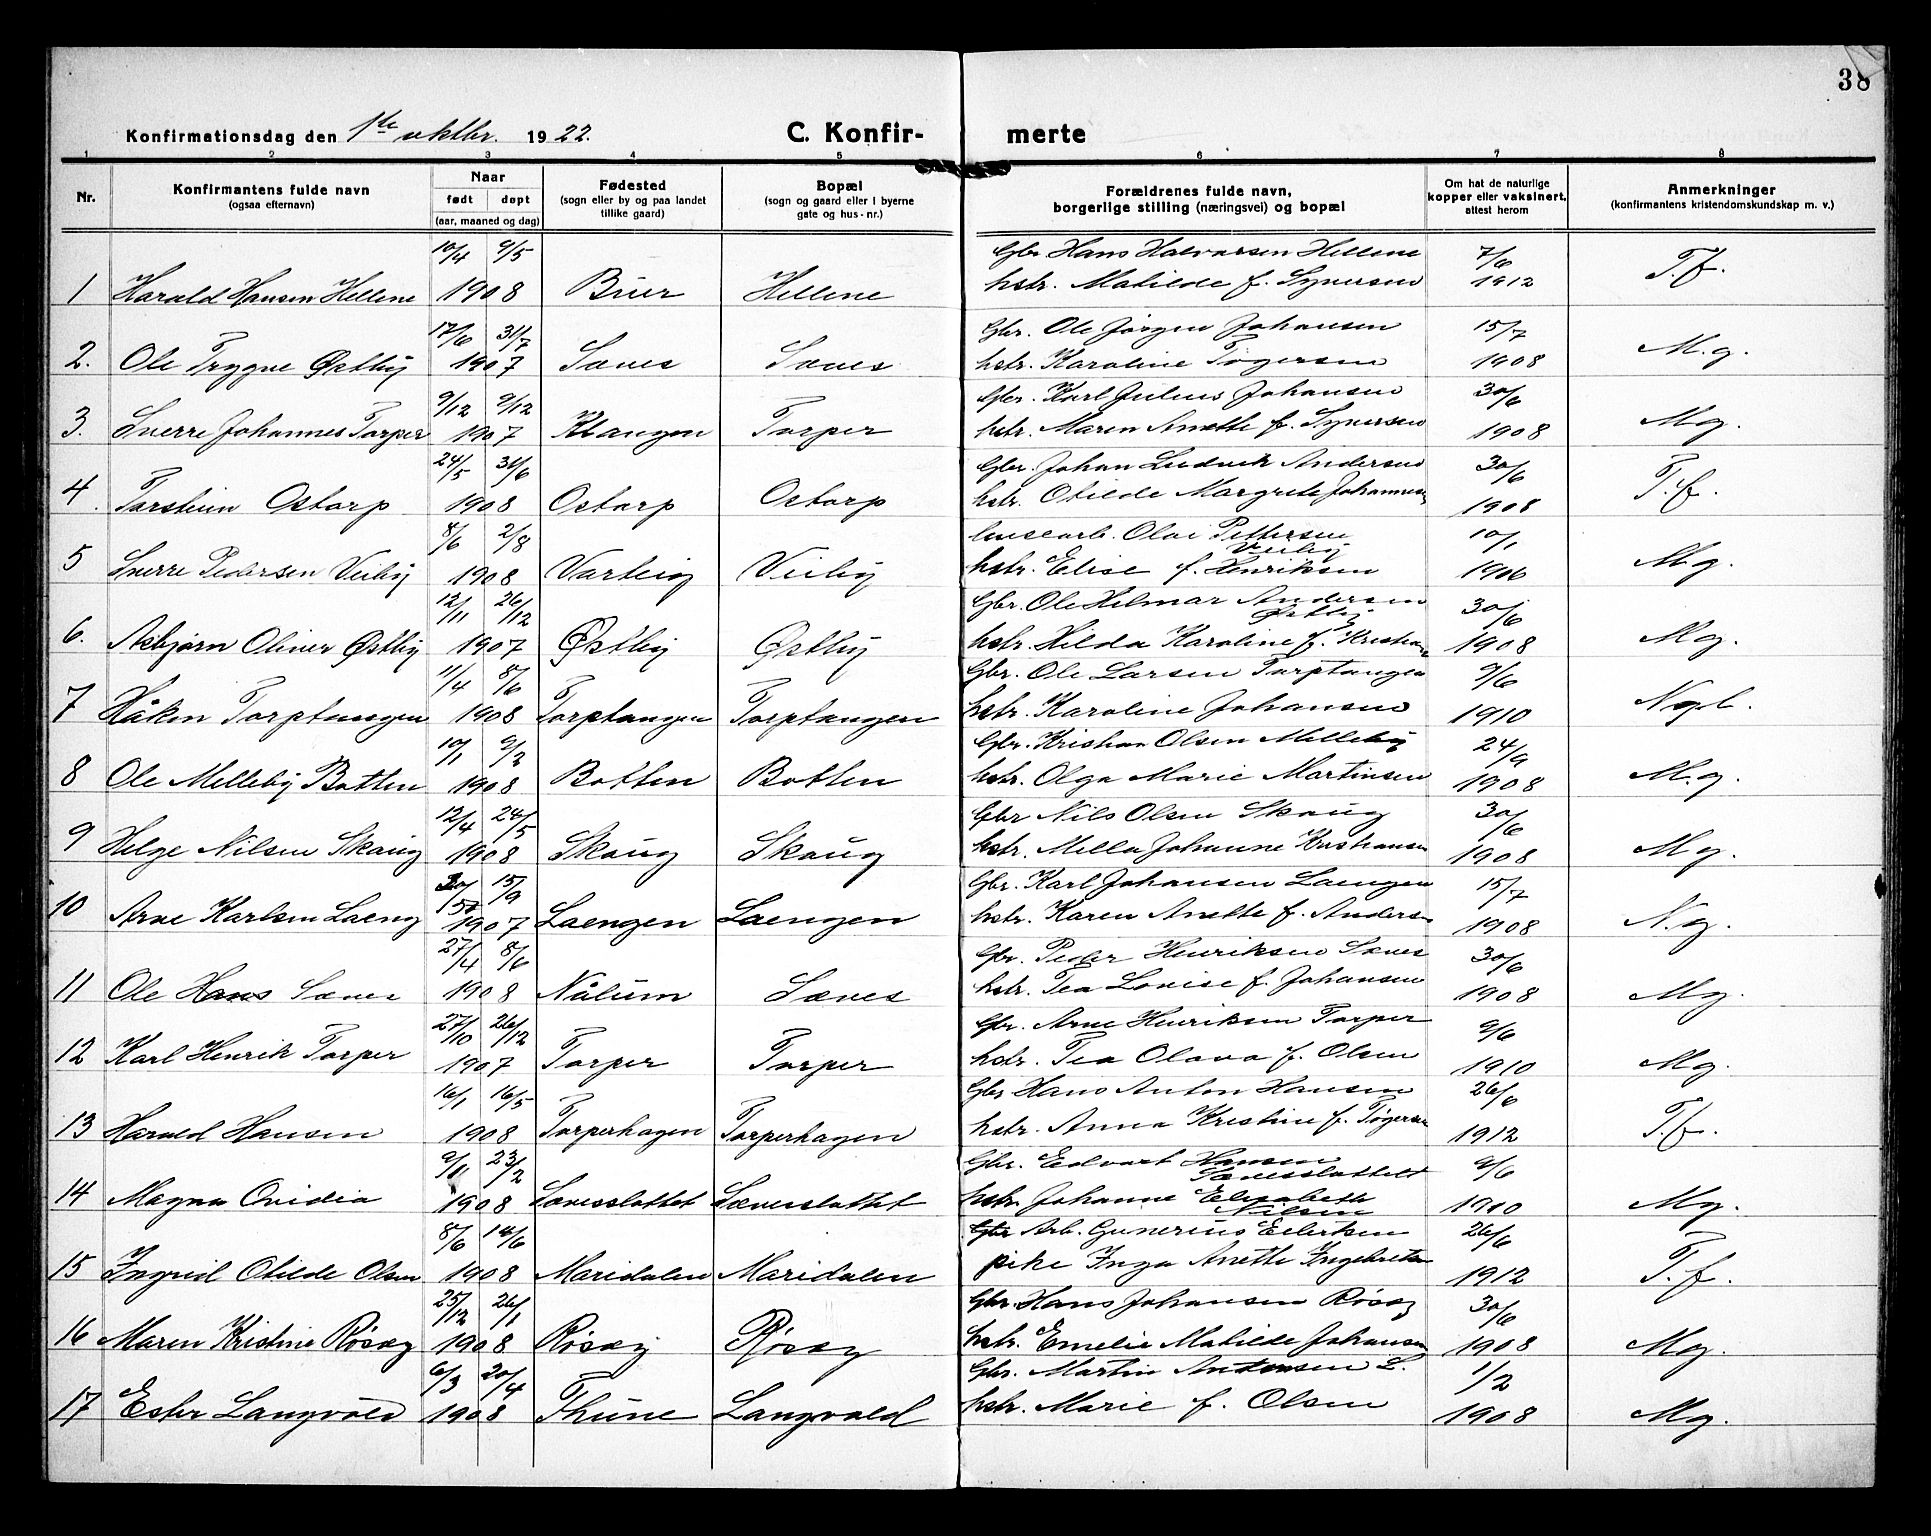 38
Konfirmationsdag den 1ste oktbr. 1922. C. Konfir- merte
1 2 3 4 5 6 7 8
Nr. Konfirmantens fulde navn (ogsaa efternavn) Naar født døpt (aar, maaned og dag) Fødested (sogn eller by og paa landet tillike gaard) Bopæl (sogn og gaard eller i byerne gate og hus-nr.) Forældrenes fulde navn, borgerlige stilling (næringsvei) og bopæl Om hat de naturlige kopper eller vaksinert, attest herom Anmerkninger (konfirmantens kristendomskundskap m. v.)
10/4 9/5 Gbr. Hans Halvorsen Hellene 7/6
1 Harald Hansen Hellene 1908 Buer Hellene hstr. Matilde f. Synersen 1912 T.f.
17/6 31/7 Gbr. Ole Jørgen Johansen 15/7
2. Ole Trygve Østby 1907 Sæves Sæves hstr. Karoline Tøgersen 1908 M.g.
9/12 9/12 Gbr. Karl Julius Johansen 30/6
3. Sverre Johannes Torper 1907 Klangen Torper hstr. Maren Anette f. Synersen 1908 Mg.
24/5 31/6 Gbr. Johan Ludvik Andersen 30/6
4. Torstein Ostorp 1908 Ostorp Ostorp hstr. Otilde Margrete Johannesen 1908 T.f.
8/6 2/8 Olai Pettersen Veiby 10/1
5 Sverre Pedersen Veiby 1908 Varteig Veiby hstr. Elise f. Henriksen 1906 Mg.
12/11 26/12 Gbr. Ole Helmar Andersen Østby 30/6
6. Asbjørn Oliver Østby 1907 Østby Østby hstr. Hilda Karoline f. Kristians 1908 Mg.
11/4 8/6 Gbr. Ole Larsen Torptangen 9/6
7 Håkon Torptangen 1908 Torptangen Torptangen hstr. Karoline Johansen 1910
10/1 9/2 Gbr. Kristian Olsen Melleby 24/9
8 Ole Melleby Botten 1908 Botten Botten hstr. Olga Marie Martinsen 1908 M.g.
12/4 24/5 Gbr Nils Olsen Skaug 30/6
9 Helge Nilsen Skaug 1908 Skaug Skaug hstr. Mella Johanne Kristiansen 1908 Mg.
15/9 Gbr. Karl Johansen Laengen 15/7
10 Arne Karlsen Laeng 1907 Laengen Laengen hstr. Karen Anette f. Anders 1908 N.g.
27/4 8/6 Gbr. Peder Henriksen Sæves 30/6
11 Ole Hans Sæves 1908 Nålum Sæves hstr. Tea Lovise f. Johansen 1908 Mg.
27/10 26/12 Gbr. Arne Henriksen Torper 9/6
12 Karl Henrik Torper 1907 Torper Torper hstr. Tea Olava f. Olsen 1910 Mg.
16/1 16/5 Gbr Hans Anton Hansen 26/6
13 Harald Hansen 1908 Torperhagen Torperhagen hstr. Anna Kristine f. Tøgersen 1912 T.f.
9/11 23/2 Gbr. Edvart Hansen Sævesslottet 9/6
14 Magna Ovidia 1908 Sævesslottet Sævesslottet hstr. Johanne Elisabeth Nilsen 1910 Mg.
8/6 14/6 Gbr Arb. Gunerius Eilertsen 26/6
15 Ingrid Otilde Olsen 1908 Maridalen Maridalen pike Inga Anette Ingebretsen 1912 T.f.
25/12 26/1 Gbr. Hans Johansen Røsæg 30/6
16 Maren Kristine Røsæg 1908 Røsæg Røsæg hstr. Emelie Matilde Johansen 1908 Mg.
6/3 20/4 Gbr. Martin Andersen L. 1/2
17 Ester Langvold 1908 Thune Langvold hstr. Marie f. Olsen 1908 Mg.